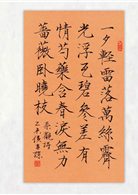 一夕輕雷落萬絲霽
光浮瓦碧參差有
情芍藥含春淚無力
薔薇臥曉枝
秦觀詩